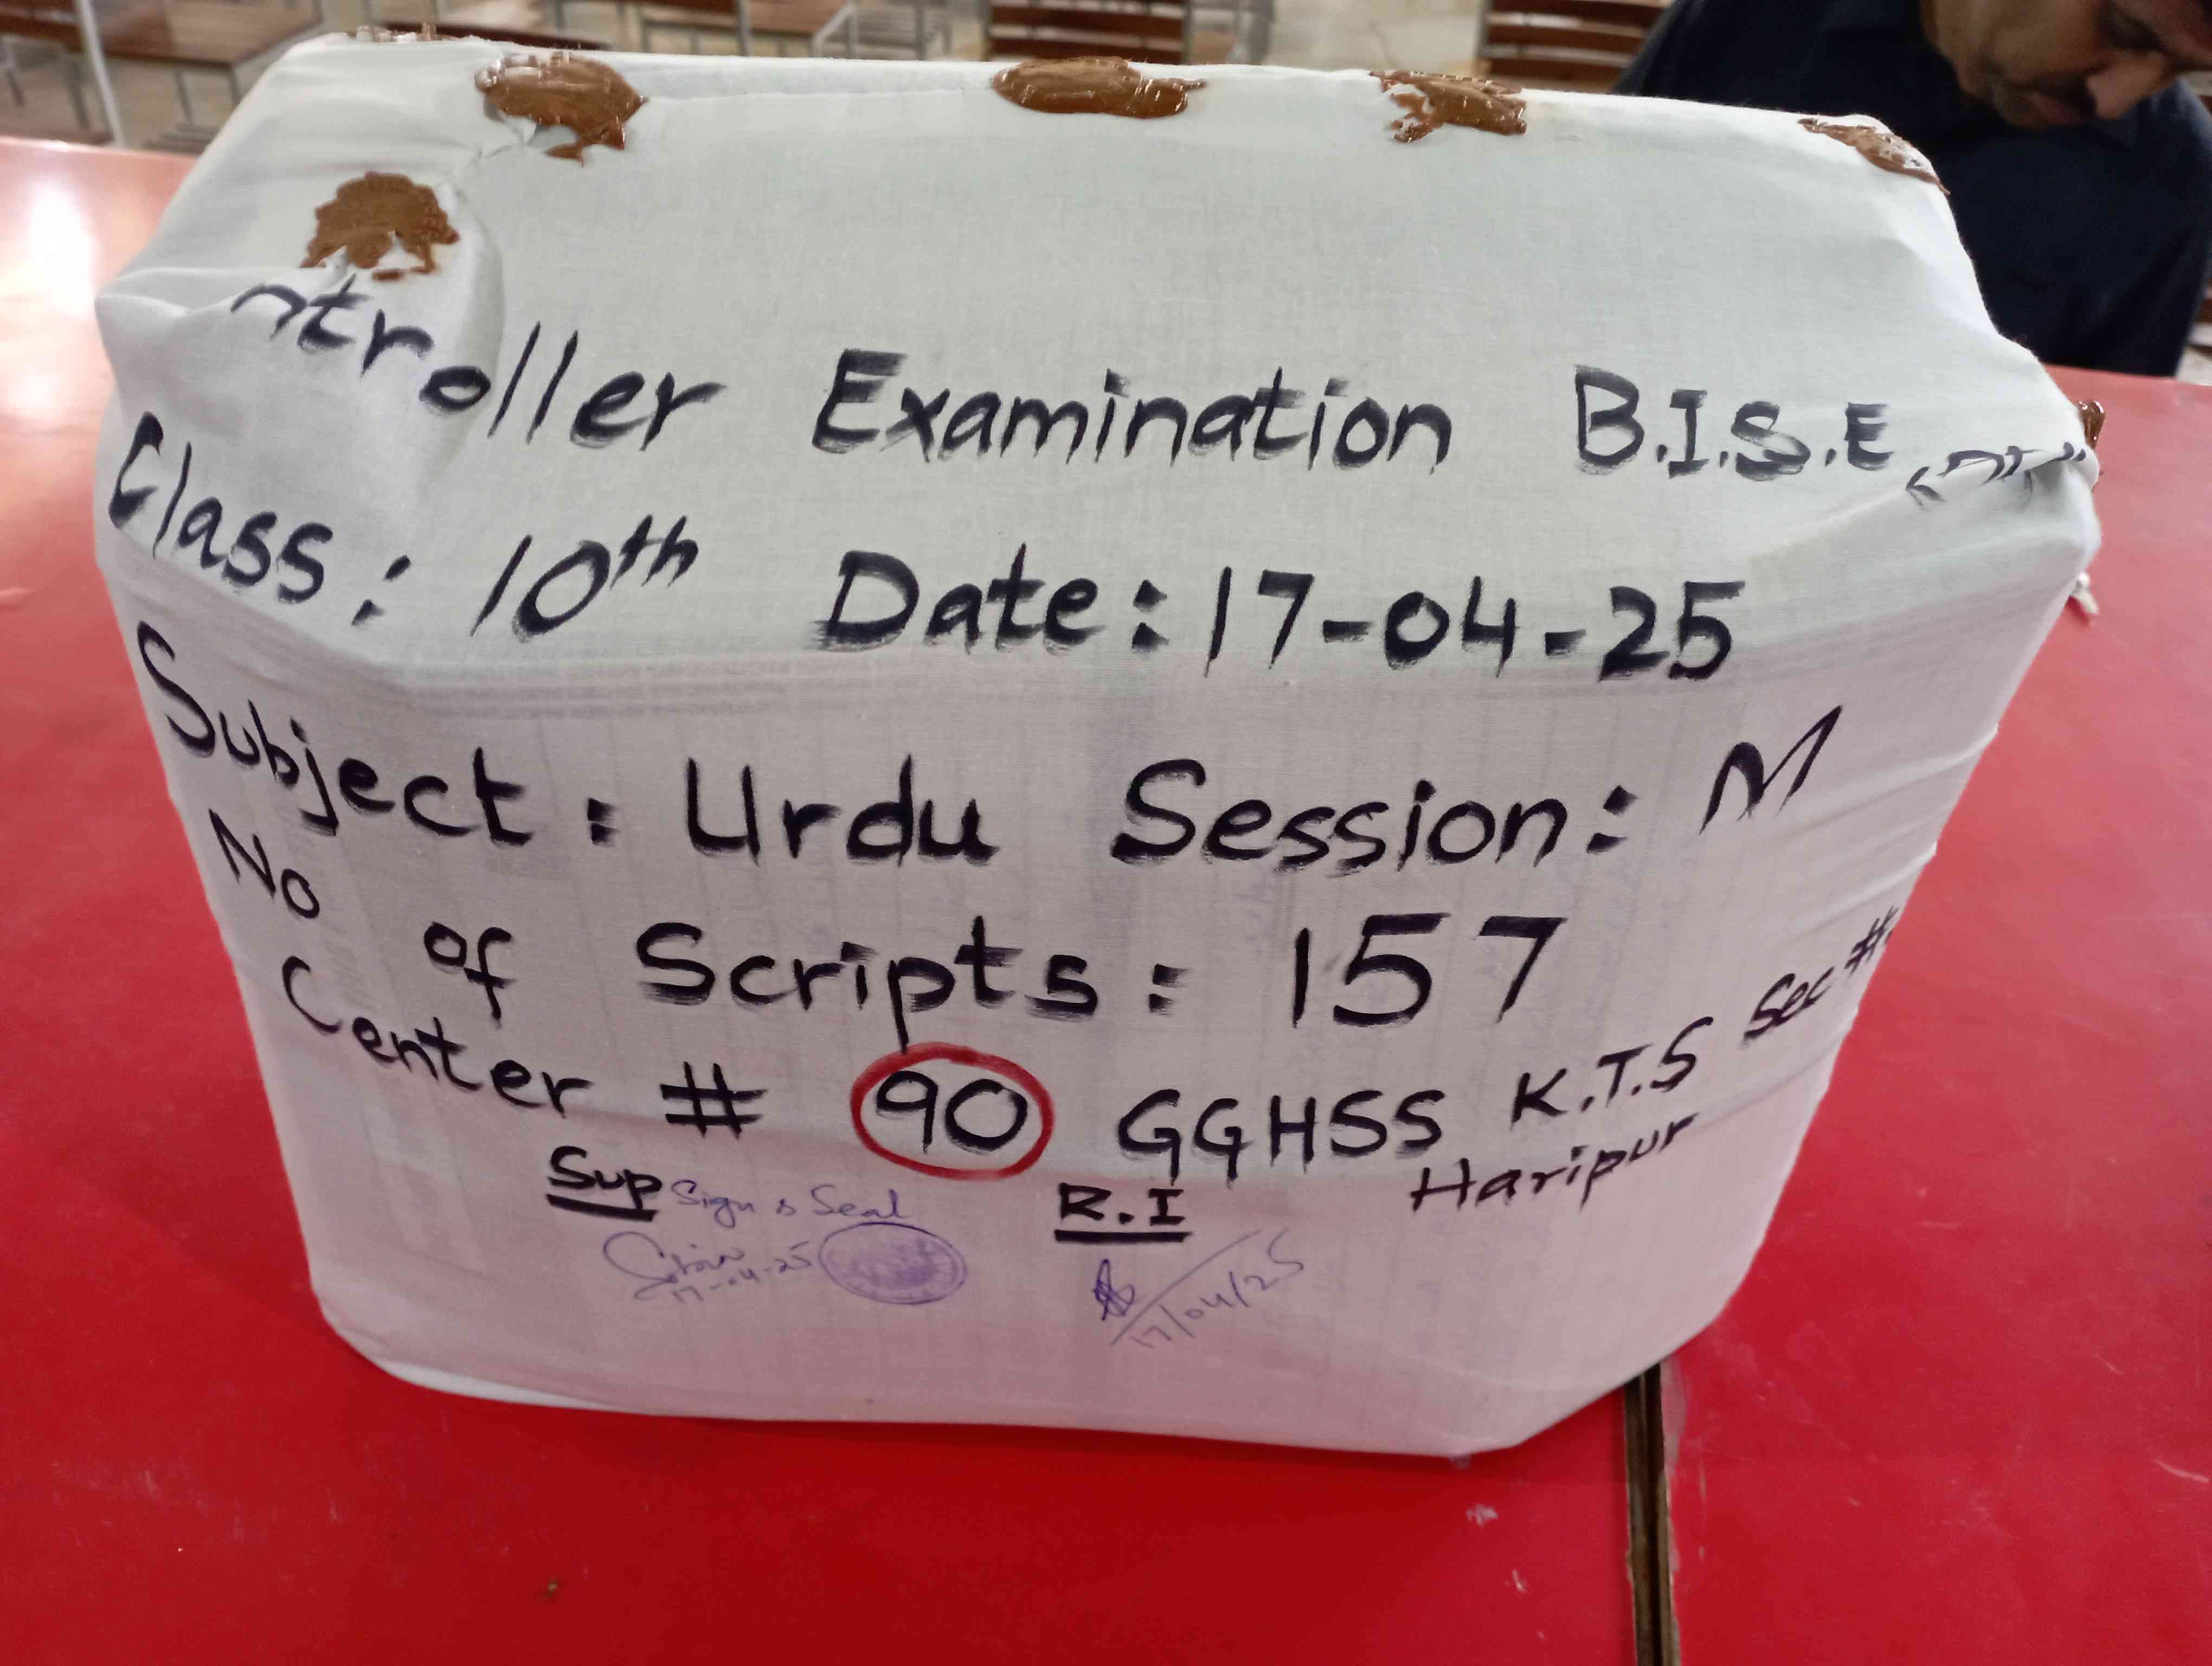 ntroller Examination B.I.S.E
Class: 10th Date: 17-04-25
Subject: Urdu Session: M
No of Scripts: 157
Center # 90 GGHSS K.T.S Sec #
Haripur
Sup Sign & Seal R.I
17-04-25
17/04/25